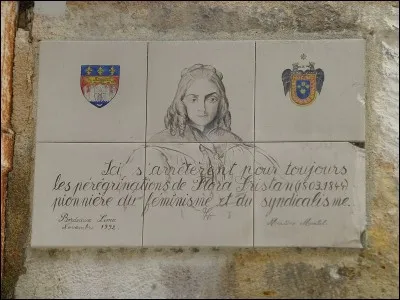 Ici s'arrêtèrent pour toujours
les pérégrinations de Flora Tristan (1803.1844)
pionnière du féminisme et du syndicalisme.
Bordeaux Lima